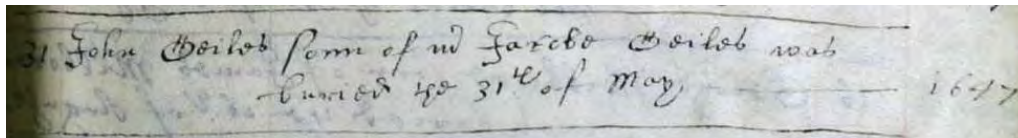 31 John Geiles sonn of mr Jacobe Geiles was
buried the 31th of May 1647